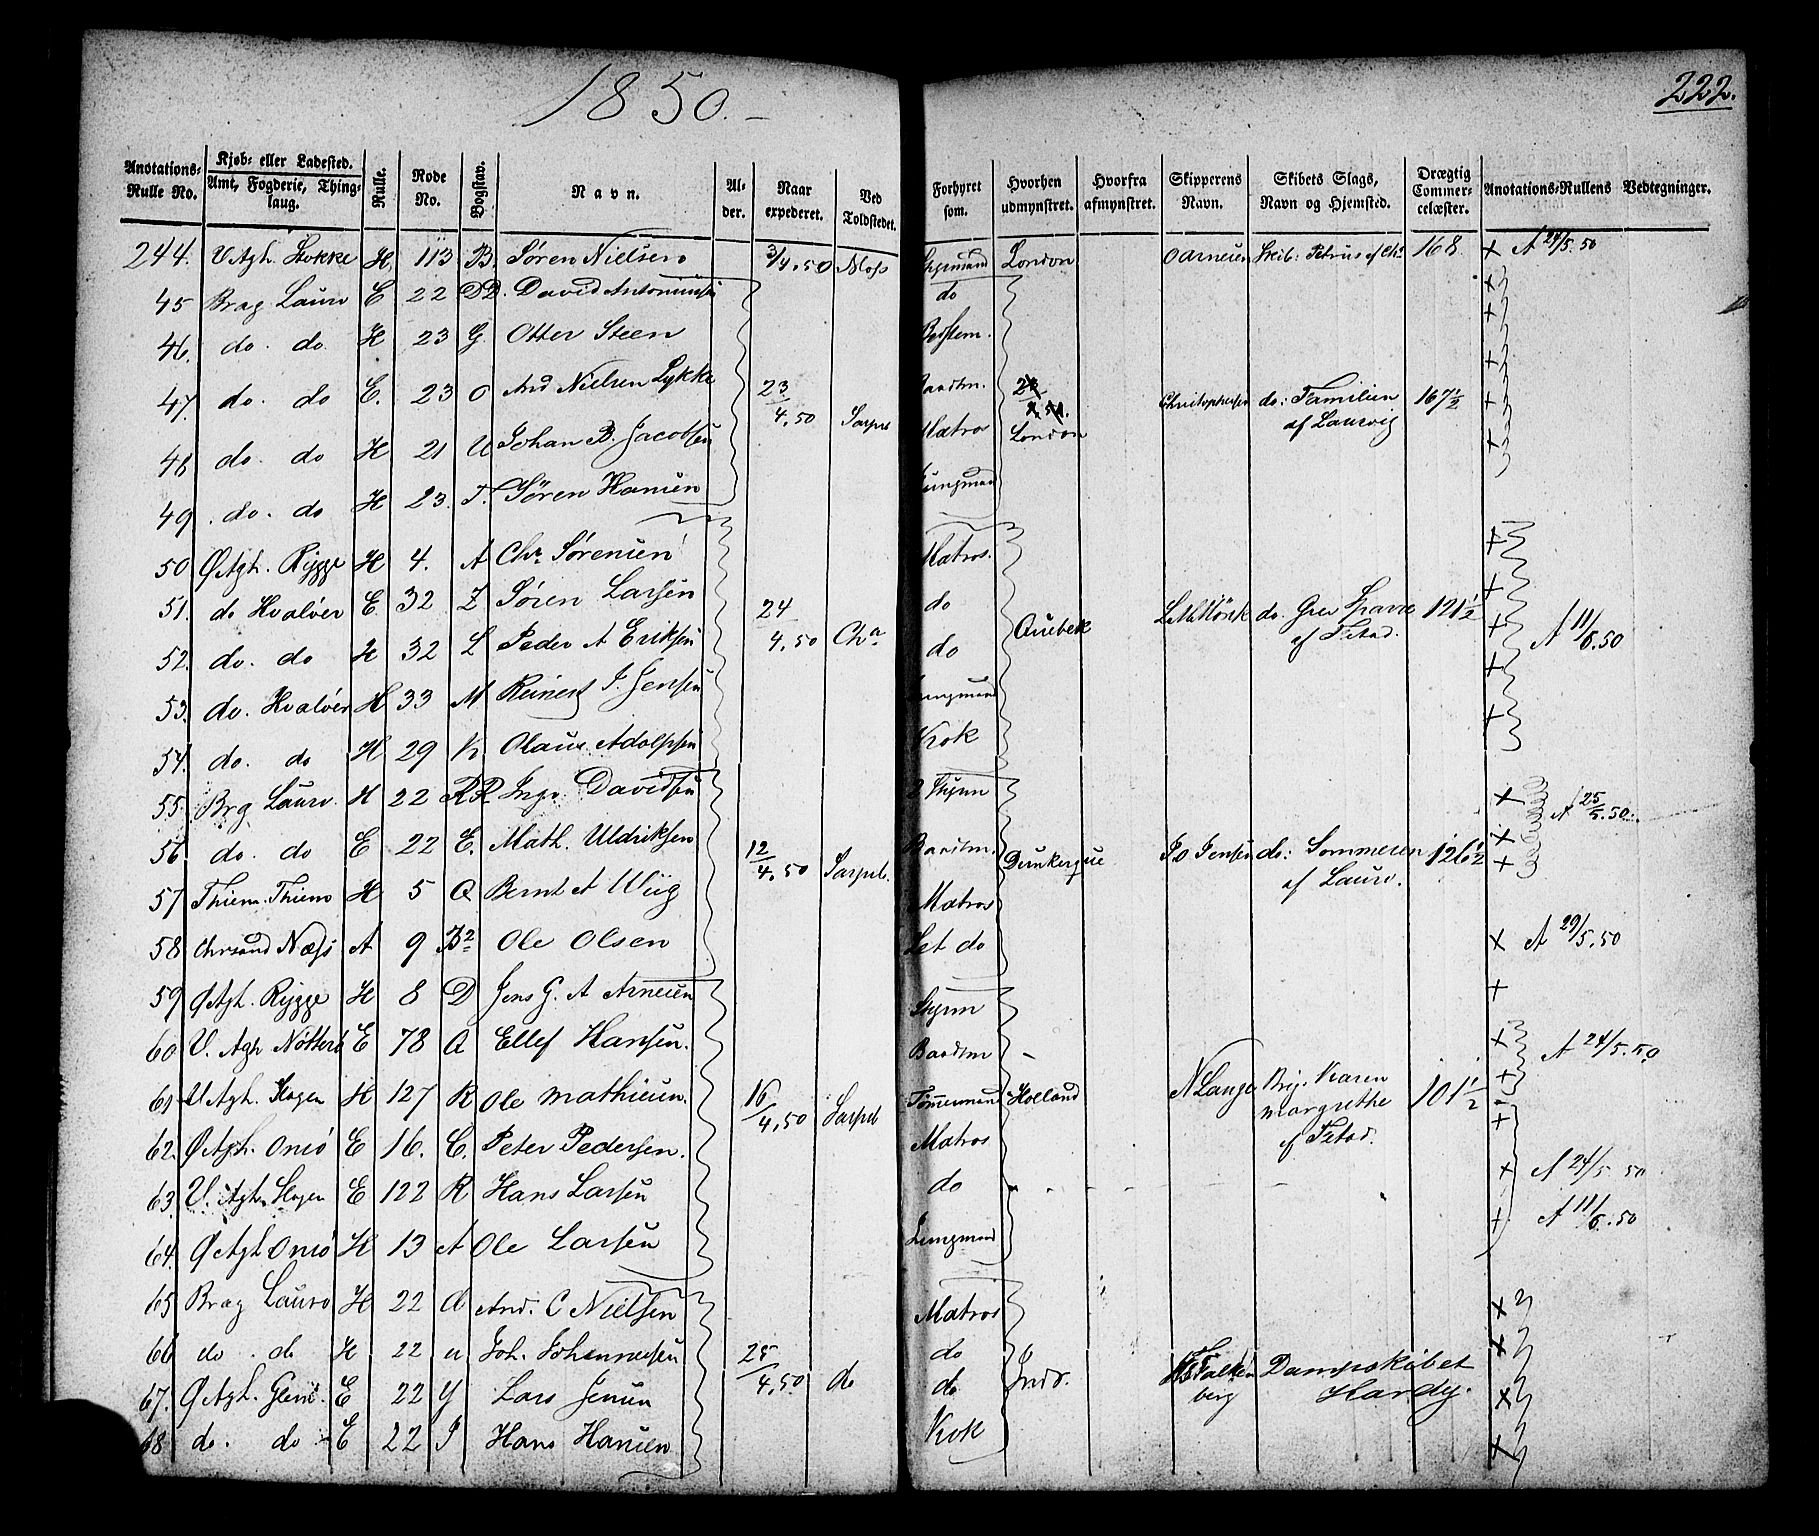 1850.-
222.
Anotations- Rulle No. | Kjøb- eller Ladested. Amt, Fogderie, Thinglaug. | Rulle. | Rode No. | Bogstav. | Navn. | Alder. | Naar expederet. | Ved Toldstedet. | Forhyret som. | Hvorhen udmynstret. | Hvorfra afmynstret. | Skipperens Navn. | Skibets Slags, Navn og Hjemsted. | Drægtig Commercelæster. | Anotations-Rullens Vedtegninger.
244. V Agh. Stokke H. 113 B. Søren Nielsen 3/4.50 Moss Styrmand London O Arnesen Skib: Petrus af Cha 168 x A 24/5.50
45 Brag Laurv E 22 DD. David Antonnisen do x
46. do. do H 23 G. Otter Steen x
47. do. do E. 23 O And Nielsen Lykke 23/4.50 Sarpsb Baadsm. London Christophersen do: Familien af Laurvig 167 1/2 x
48 do. do H 21 U Johan B. Jacobsen Matros x
49 . do. do H 23. T. Søren Hansen Jungmand
50 Ø Agh. Rygge H 4. A Chr. Sørensen Matros. x
51. do Hvaløer E. 32 Z Søren Larsen 24/4.50 Cha do Quebek do. Grev af Fstad. 121 1/2 x
52. do. do H 32 L Peder A Eriksen do x A 11/6.50
53. do. Hvaløer H 33 M Reinert J. Jensen Jungmand x
54. do. do H 29 K Olaus Adolphsen Kok x
55. Brg Laurv. H 22 RR Ingv. Davidsen Styrm x A 25/5.50.
56 do. do E 22 E. Math. Uldriksen 12/4.50 Sarpsb. Baadsm. Dunkerque Jensen do: Sommeren af Laurv. 126 1/2 x x
57 Thiem. Thiemo H 5 Q Bernt A Wiig Matros
58 Chrsand Næss A 9 B2 Ole Olsen Let do x A 29/5.50
59 Ø Agh. Rygge H 8 D Jens G. A Arnesen Styrm x
60 V. Agh Nøtterø E 78 A Ellef Hansen. Baadsm - x A 24/5.50
61. V Agh. H 127 R Ole Mathiesen. 16/4.50 Sarpsb Tømmermand Holland N Lange Brig. Karen Margrethe af Fstad. 101 1/2 x
62. Ø Agh. Onsø E 16. C. Peter Pedersen. Matros x
63. V. Agh. E 122 R Hans Larsen do x A 24/5 50
64. Ø Agh Onsø H 13 A Ole Larsen Jungmand x A 11/6.50
65 Brag Laurv H 22 And. C Nielsen Matros x
66 do. do H 22 u Joh. Johannesen 25/4.50 do do x
67. Ø Agh. Glem. E 22 Y Lars Jensen do Indr. Falkenberg Dampskibet Hardy. x
68 do. do E 22 Hans Hansen Kok x